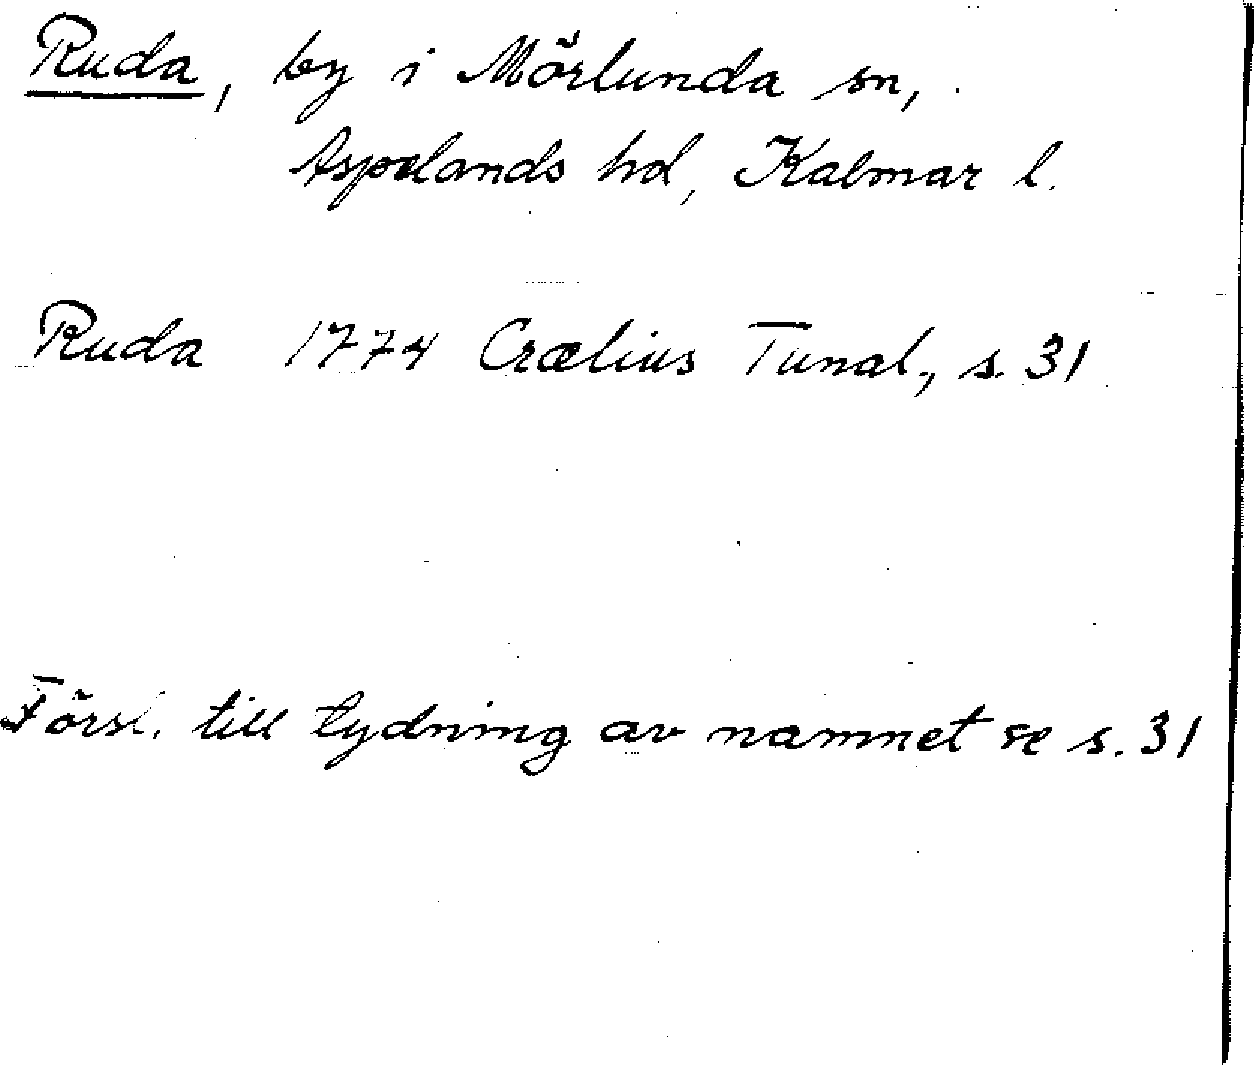 Ruda, by i Mörlunda sn,
Aspelands hd, Kalmar l.
Ruda 1774 Crælius Tunal., s. 31
Försl. till tydning av namnet se s. 31